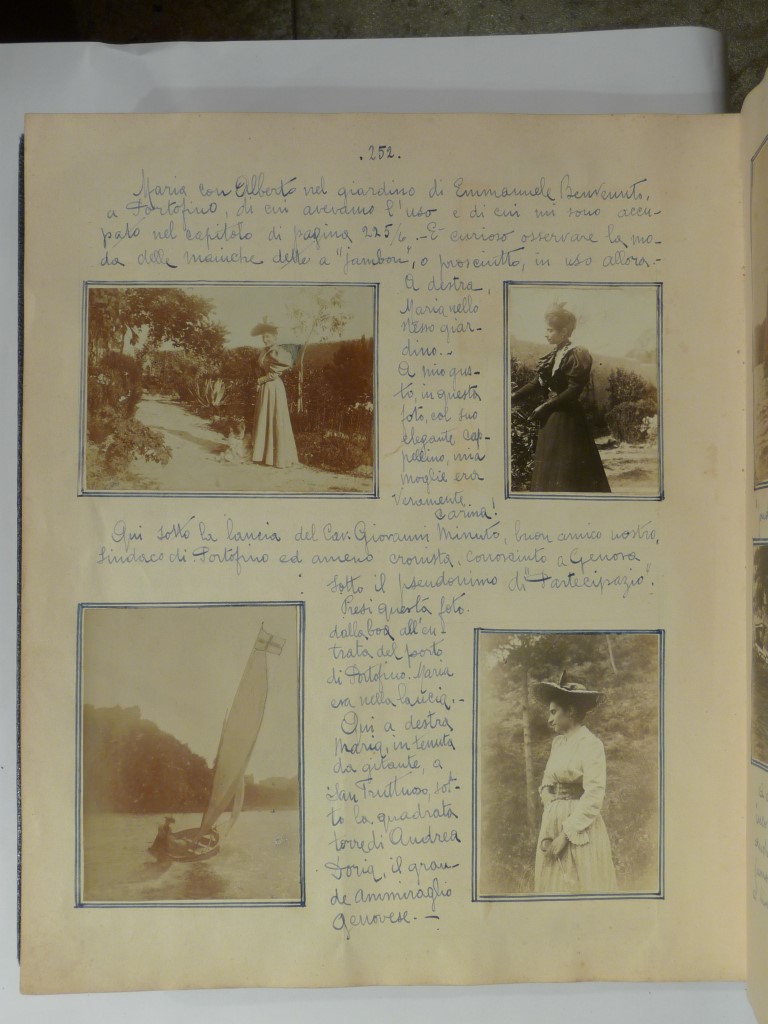 . 252 .
Maria con Alberto nel giardino di Emmanuele Benvenuto,
a Portofino, di cui avevamo l'uso e di cui mi sono accu-
pato nel capitolo di pagina 225/6. - È curioso osservare la mo-
da delle maniche dette a "jambon", o prosciutto, in uso allora. -
A destra,
Maria nello
stesso giar-
dino. -
A mio gus-
to, in questa
foto, col suo
elegante cap-
pellino, mia
moglie era
veramente
carina!
Qui sotto la lancia del Cav. Giovanni Minuto, buon amico nostro,
Sindaco di Portofino ed ameno cronista, conosciuto a Genova
sotto il pseudonimo di "Partecipazio".
Presi questa foto
dalla boa all'en-
trata del porto
di Portofino. Maria
era nella lancia. -
Qui a destra
Maria, in tenuta
da gitante, a
San Fruttuoso, sot-
to la quadrata
torre di Andrea
Doria, il gran-
de Ammiraglio
Genovese. -